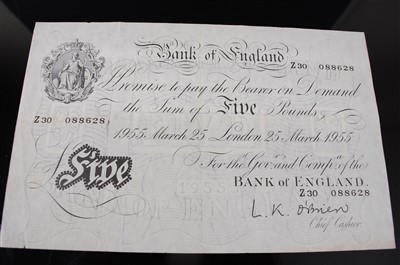 Bank of England
Z30 088628
I Promise to pay the Bearer on Demand
the Sum of Five Pounds
Z30 088628
1955 March 25 London 25 March 1955
For the Govr. and Compa. of the
Five
BANK OF ENGLAND.
Z30 088628
L. K. O'Brien
Chief Cashier